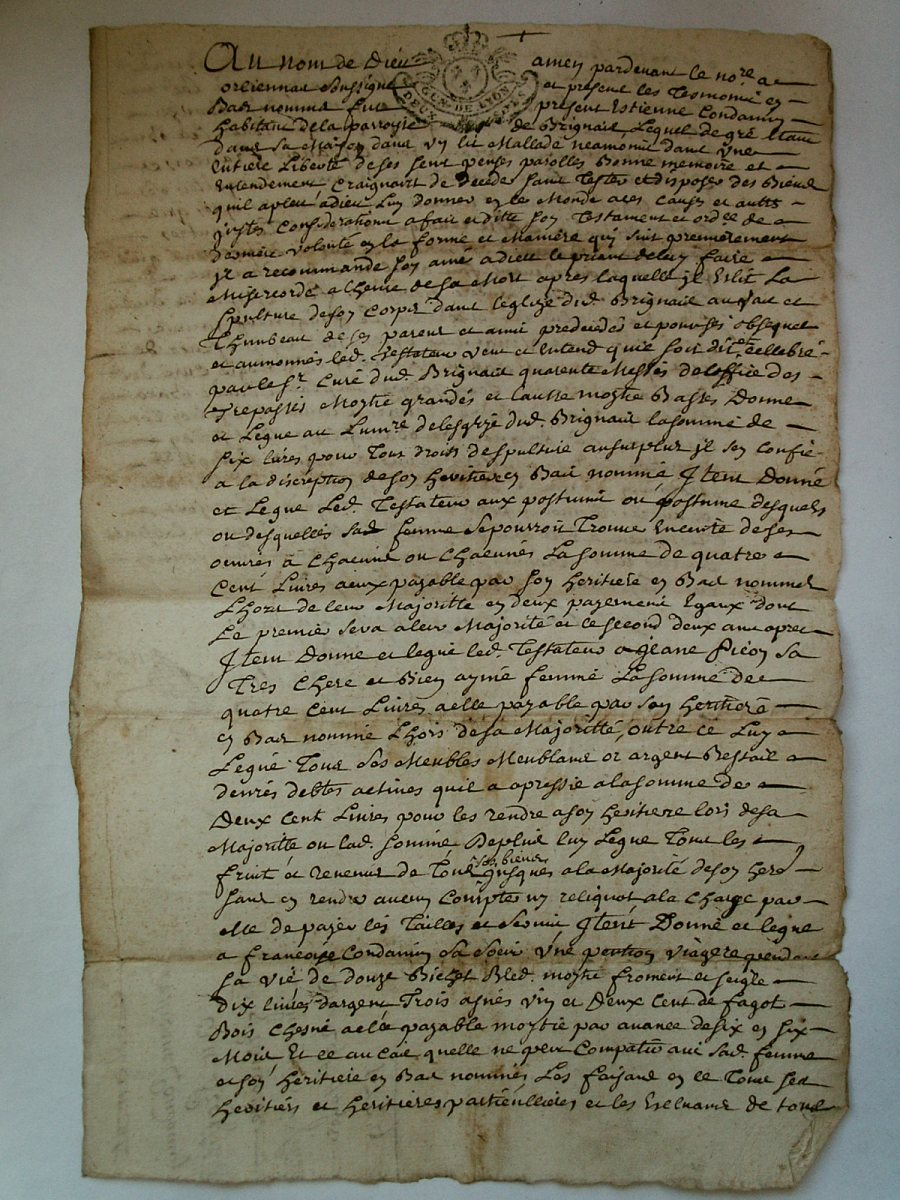 Au nom de Dieu amen pardevant le nore a
orliennas soussigné et present les Tesmoins en
Bas nommes fut present Estienne Condamin
habitant de la parroysse de Brignais Lequel de gré Etant
dans sa Maison dans un lit Mallade neamoins dans une
Entiere Liberté de ses sens penses parolles Bonne memoire et
Entendement Craignant de deceder sans Tester et disposer des Biens
quil a pleu a dieu Luy donner en ce Monde a ces causes et auttes
justes Considerations a fait et ditte son Testament et ordce de
derniere volonté en la forme et Maniere quy suit premierement
jl a recommandé son ame a dieu le priant de luy faire
Misericorde a lheure de sa Mort apres laquelle jl Eslit La
Sepulture de son Corps dans leglize dud. Brignais au vas et
Thumbeau de ses parens et amis predecedés et pour ses obseques
et aumonnes led. Testateur veut et Entend quie soit dit et cellebré
par le Sr. Curé dud. Brignais quarente Messes de loffice des
Trepassés Moytié grandes et lautre moytié Basses Donne
et Legue au Lumre de lesglize dud. Brignais la somme de
six livres pour Tous droits de sepulture au surplus jl sen confie
a la discreption de son heritiere en Bas nommée Jtem Donne
et Legue Led. Testateur aux postumes ou postume desquels
ou desquelles sad. femme se pourroit Trouver Enceinte de ses
oeuvres à Chacuns ou Chacunnes La somme de quatre
Cent Livres a eux payable par son heritiere en Bas nommée
Lhors de leur Majoritté en deux payements Egaux dont
Le premier sera a leur Majorité et le second deux ans apres
Jtem Donne et legue led. Testateur a jeane Picon sa
Tres Chere et Bien aymé femme La somme de
quatre Cent Livres a elle payable par son heritiere
en Bas nommée Lhors de sa Majoritté, outre ce Luy
Legue Tous ses Meubles Meublans or argent Bestail
denrés debtes actives quil a apressié a la somme de
Deux Cent Livres pour les rendre a son heritiere lors de sa
Majorité ou lad. somme De plus luy Legue Tous les
fruits et revenus de Tous ses biens jusques a la Majorité de son here
sans en rendre aucun Compte ny reliquat a la Charge par
elle de payer les Tailles et servis Jtem Donne et legue
a francoise Condamin sa soeur une pention viagere pendant
sa vie de douze Bichet Bled. moytié froment et seigle
Dix livres dargent Trois asnés vin et Deux Cent de fagot
Bois Chesne a elle payable moytié par avance de six en six
Mois Et ce au cas quelle ne peut Compatir avec sad. femme
et son heritiere en Bas nommés Les faisant en ce Tous ses
heritiers et heritieres particullieres et les Excluant de tous